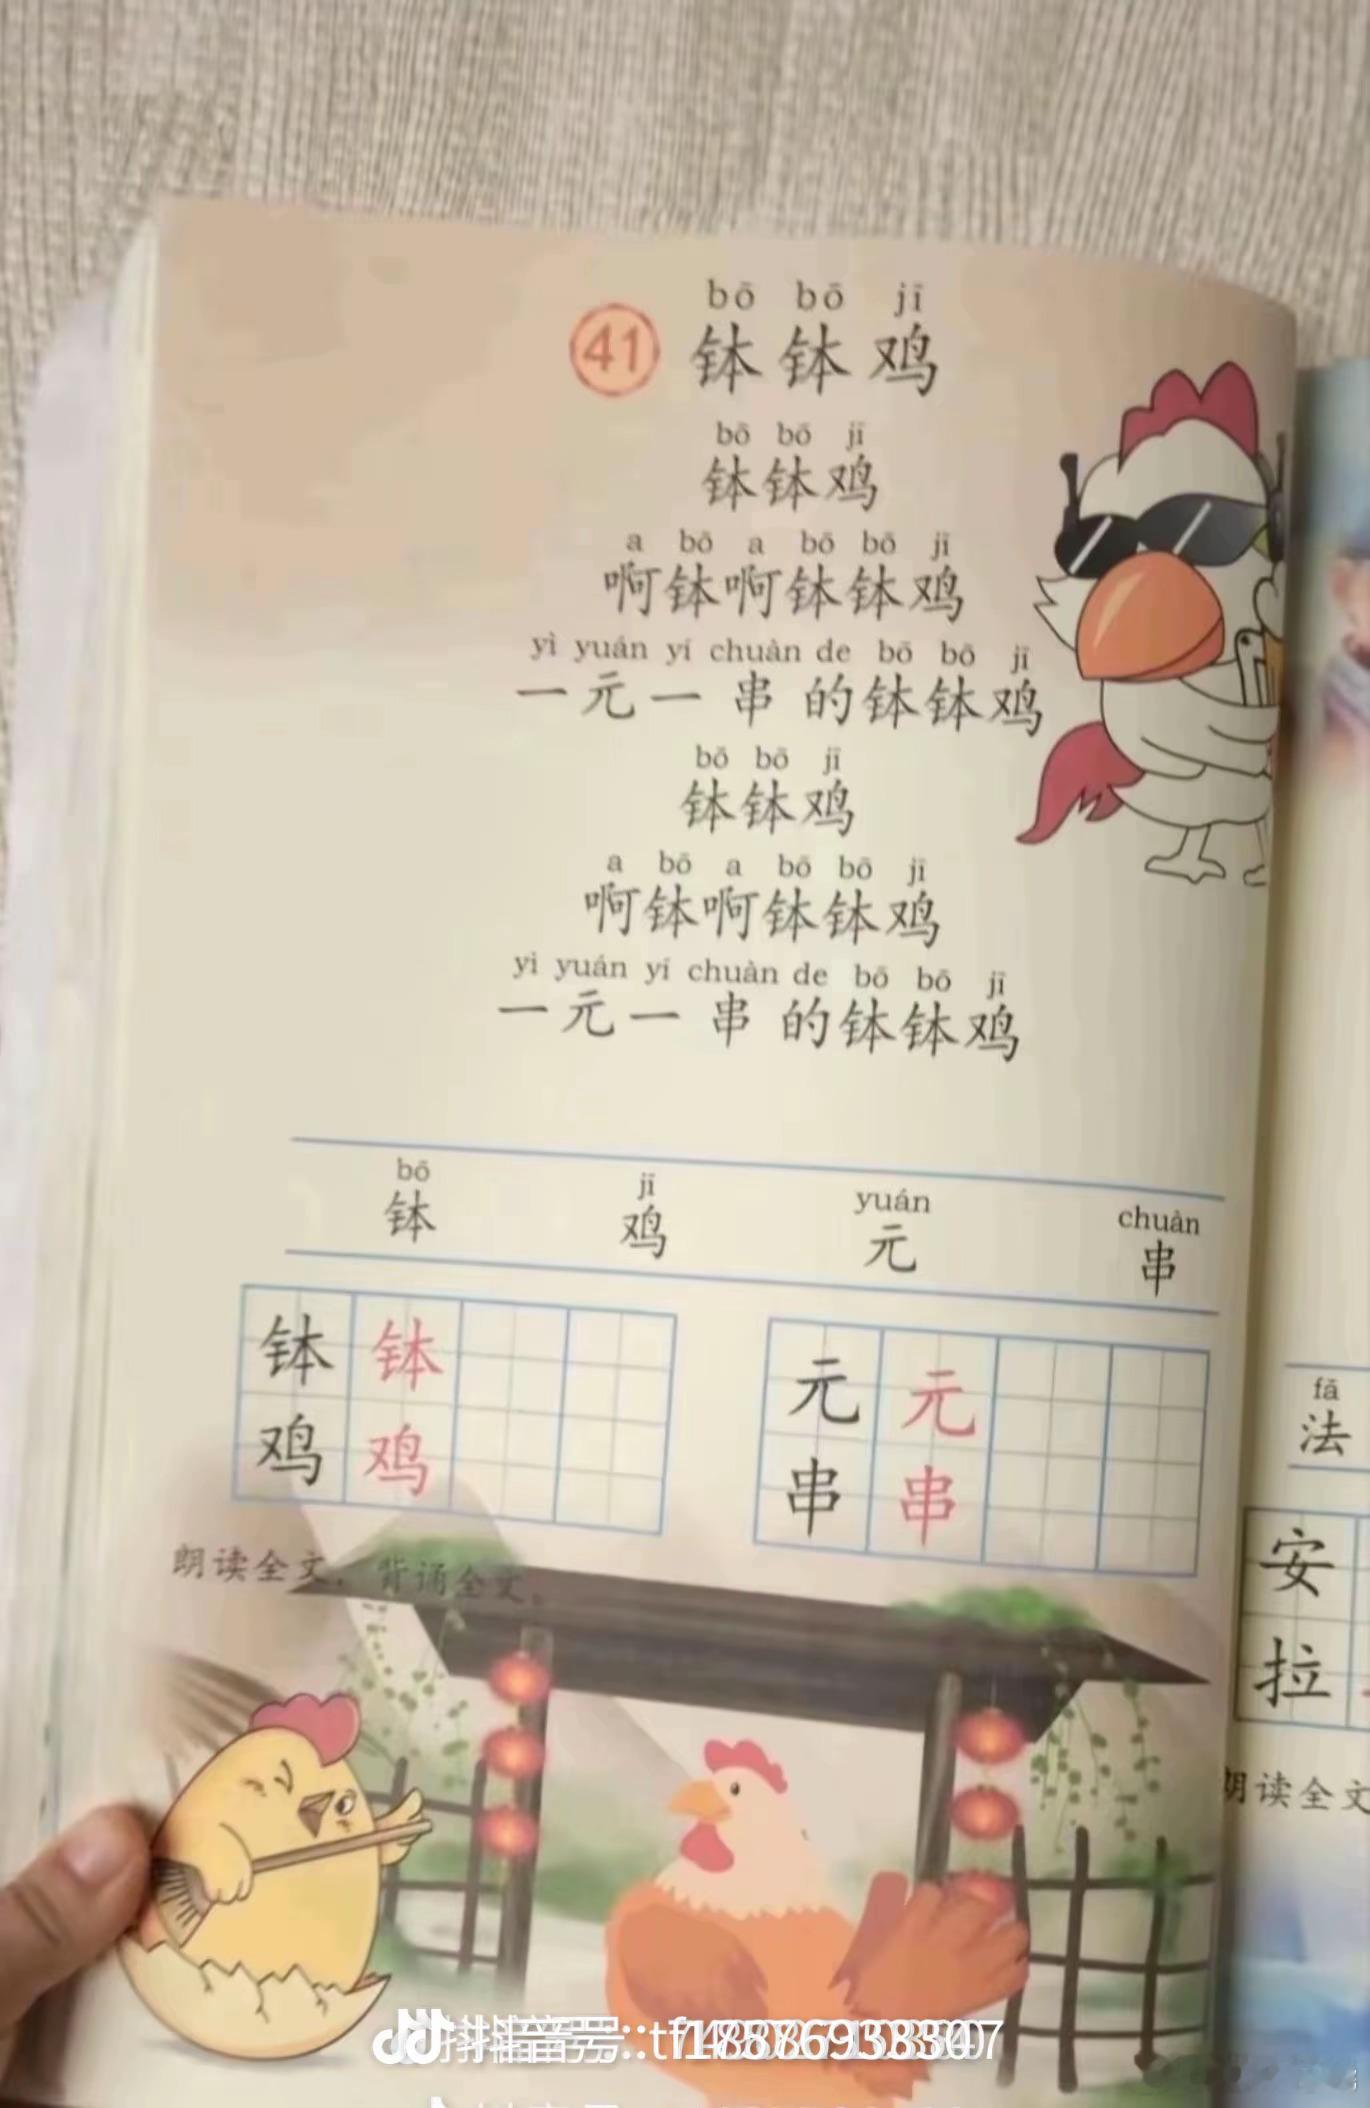 bō bō jī
41 钵钵鸡
bō bō jī
钵钵鸡
a bō a bō bō jī
啊钵啊钵钵鸡
yì yuán yí chuàn de bō bō jī
一元一串的钵钵鸡
bō bō jī
钵钵鸡
a bō a bō bō jī
啊钵啊钵钵鸡
yì yuán yí chuàn de bō bō jī
一元一串的钵钵鸡
bō jī yuán chuàn
钵 鸡 元 串
钵 钵 元 元
鸡 鸡 串 串
朗读全文,背诵全文。
fǎ
法
安
拉
朗读全文
抖音号: